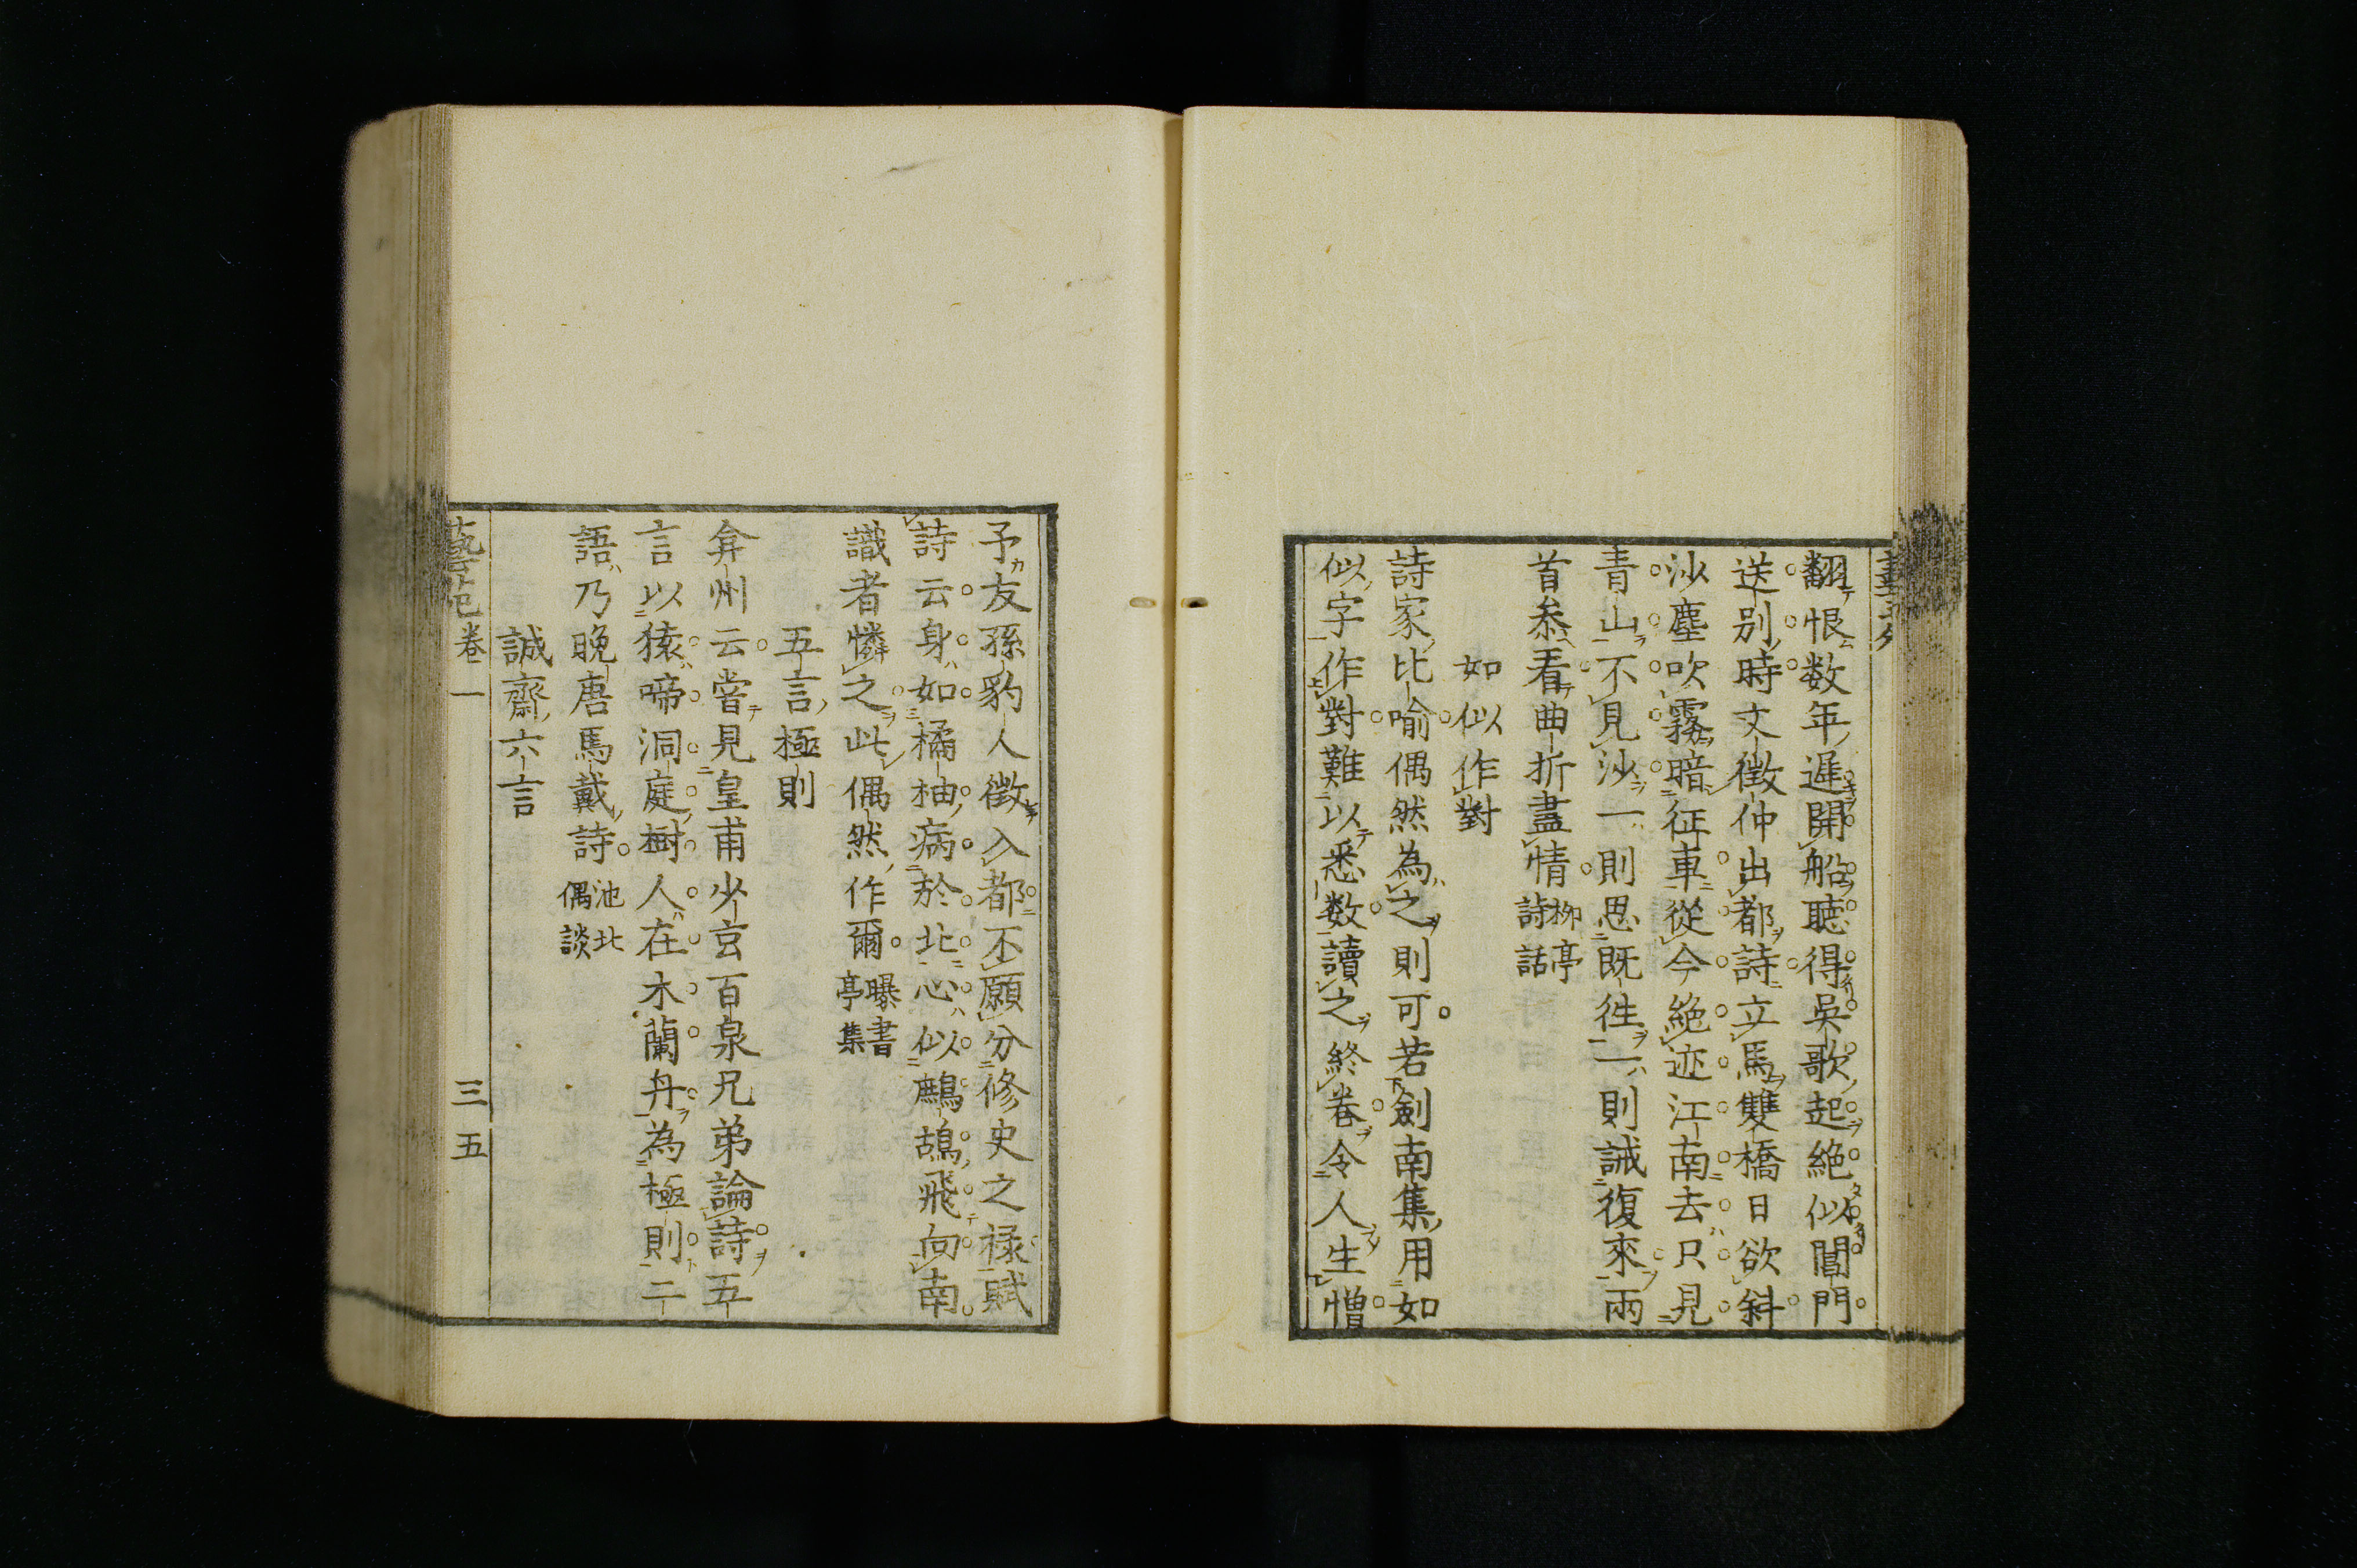 翻恨数年遲開船聴得吳歌起絶似閶門
送別時文徵仲出都詩立馬雙橋日欲斜
沙塵吹霧暗征車從今絶迹江南去只見
青山不見沙一則思既徃一則誡復來兩
首叅看曲折盡情柳亭詩話
如似作對
詩家比喻偶然為之則可若劍南集用如
似字作對難以悉数讀之終巻令人生憎
予友孫豹人徵入都不願分修史之禄賦
詩云身如橘柚病於北心似鷓鴣飛向南
識者憐之此偶然作爾曝書亭集
五言極則
弇州云甞見皇甫少玄百泉兄弟論詩五
言以猿啼洞庭樹人在木蘭舟為極則二
語乃晩唐馬戴詩池北偶談
誠齋六言
藝苑巻一 三五